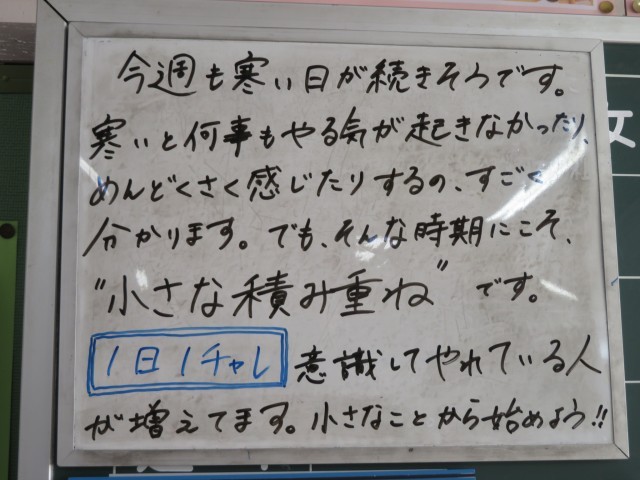 今週も寒い日が続きそうです。
寒いと何事もやる気が起きなかったり、
めんどくさく感じたりするの、すごく
分かります。でも、そんな時期にこそ、
"小さな積み重ね"です。
1日1チャレ 意識してやれている人
が増えてます。小さなことから始めよう!!